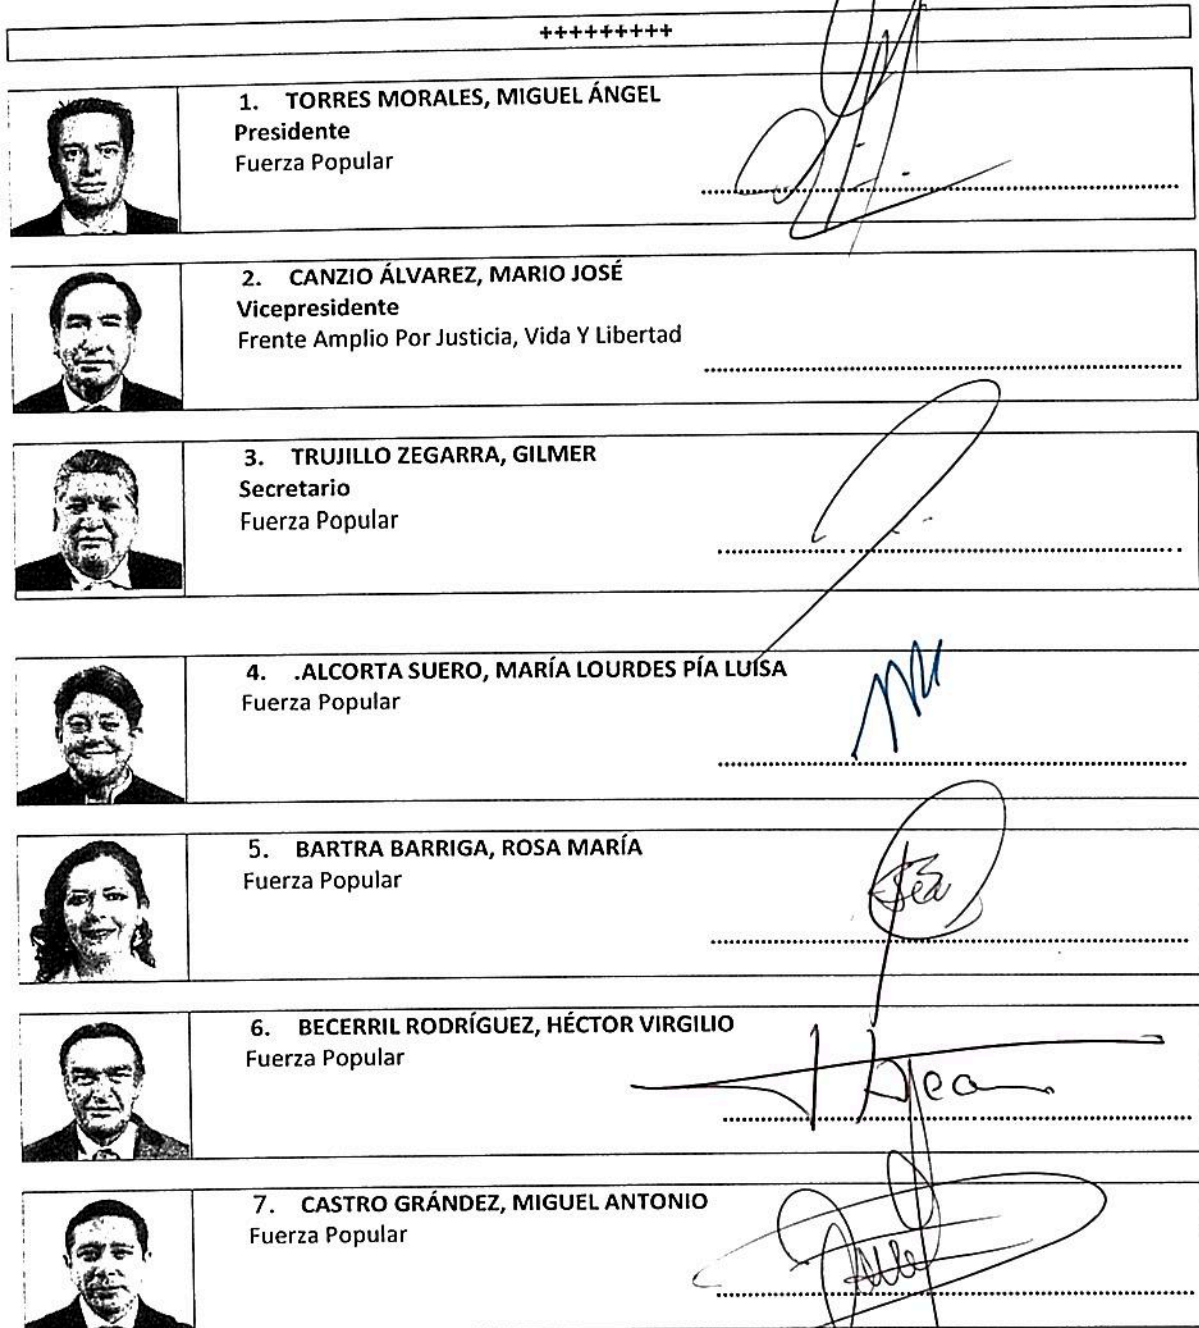 +++++++++
1. TORRES MORALES, MIGUEL ÁNGEL
Presidente
Fuerza Popular
2. CANZIO ÁLVAREZ, MARIO JOSÉ
Vicepresidente
Frente Amplio Por Justicia, Vida Y Libertad
3. TRUJILLO ZEGARRA, GILMER
Secretario
Fuerza Popular
4. .ALCORTA SUERO, MARÍA LOURDES PÍA LUISA
Fuerza Popular
5. BARTRA BARRIGA, ROSA MARÍA
Fuerza Popular
6. BECERRIL RODRÍGUEZ, HÉCTOR VIRGILIO
Fuerza Popular
7. CASTRO GRÁNDEZ, MIGUEL ANTONIO
Fuerza Popular